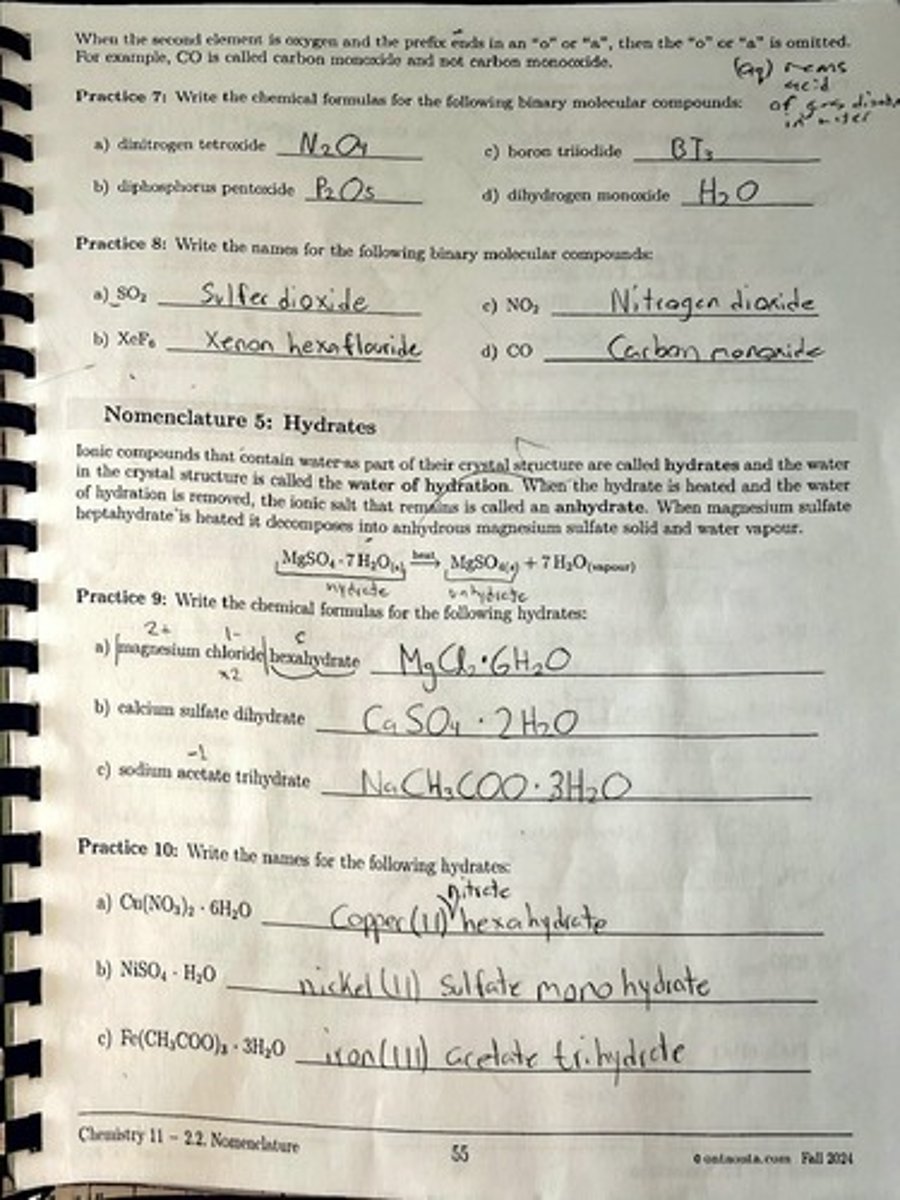 When the second element is oxygen and the prefix ends in an "o" or "a", then the "o" or "a" is omitted.
For example, CO is called carbon monoxide and not carbon monooxide.
(aq) means
acid
of gas
in water
Practice 7: Write the chemical formulas for the following binary molecular compounds:
a) dinitrogen tetroxide N₂O₄
c) boron triiodide BI₃
b) diphosphorus pentoxide P₂O₅
d) dihydrogen monoxide H₂O
Practice 8: Write the names for the following binary molecular compounds:
a) SO₂ Sulfer dioxide
c) NO₂ Nitrogen dioxide
b) XeF₆ Xenon hexaflouride
d) CO Carbon monoxide
Nomenclature 5: Hydrates
Ionic compounds that contain water as part of their crystal structure are called hydrates and the water
in the crystal structure is called the water of hydration. When the hydrate is heated and the water
of hydration is removed, the ionic salt that remains is called an anhydrate. When magnesium sulfate
heptahydrate is heated it decomposes into anhydrous magnesium sulfate solid and water vapour.
MgSO₄ · 7 H₂O(s) heat→ MgSO₄(s) + 7 H₂O(vapour)
hydrate anhydrate
Practice 9: Write the chemical formulas for the following hydrates:
2+ 1- 6
a) magnesium chloride hexahydrate MgCl₂·6H₂O
x2
b) calcium sulfate dihydrate CaSO₄ · 2H₂O
-1
c) sodium acetate trihydrate NaCH₃COO·3H₂O
Practice 10: Write the names for the following hydrates:
nitrate
a) Cu(NO₃)₂ · 6H₂O Copper(II) hexahydrate
b) NiSO₄ · H₂O nickel(II) sulfate monohydrate
c) Fe(CH₃COO)₃ · 3H₂O iron(III) acetate trihydrate
Chemistry 11 – 2.2. Nomenclature
55
Fall 2024